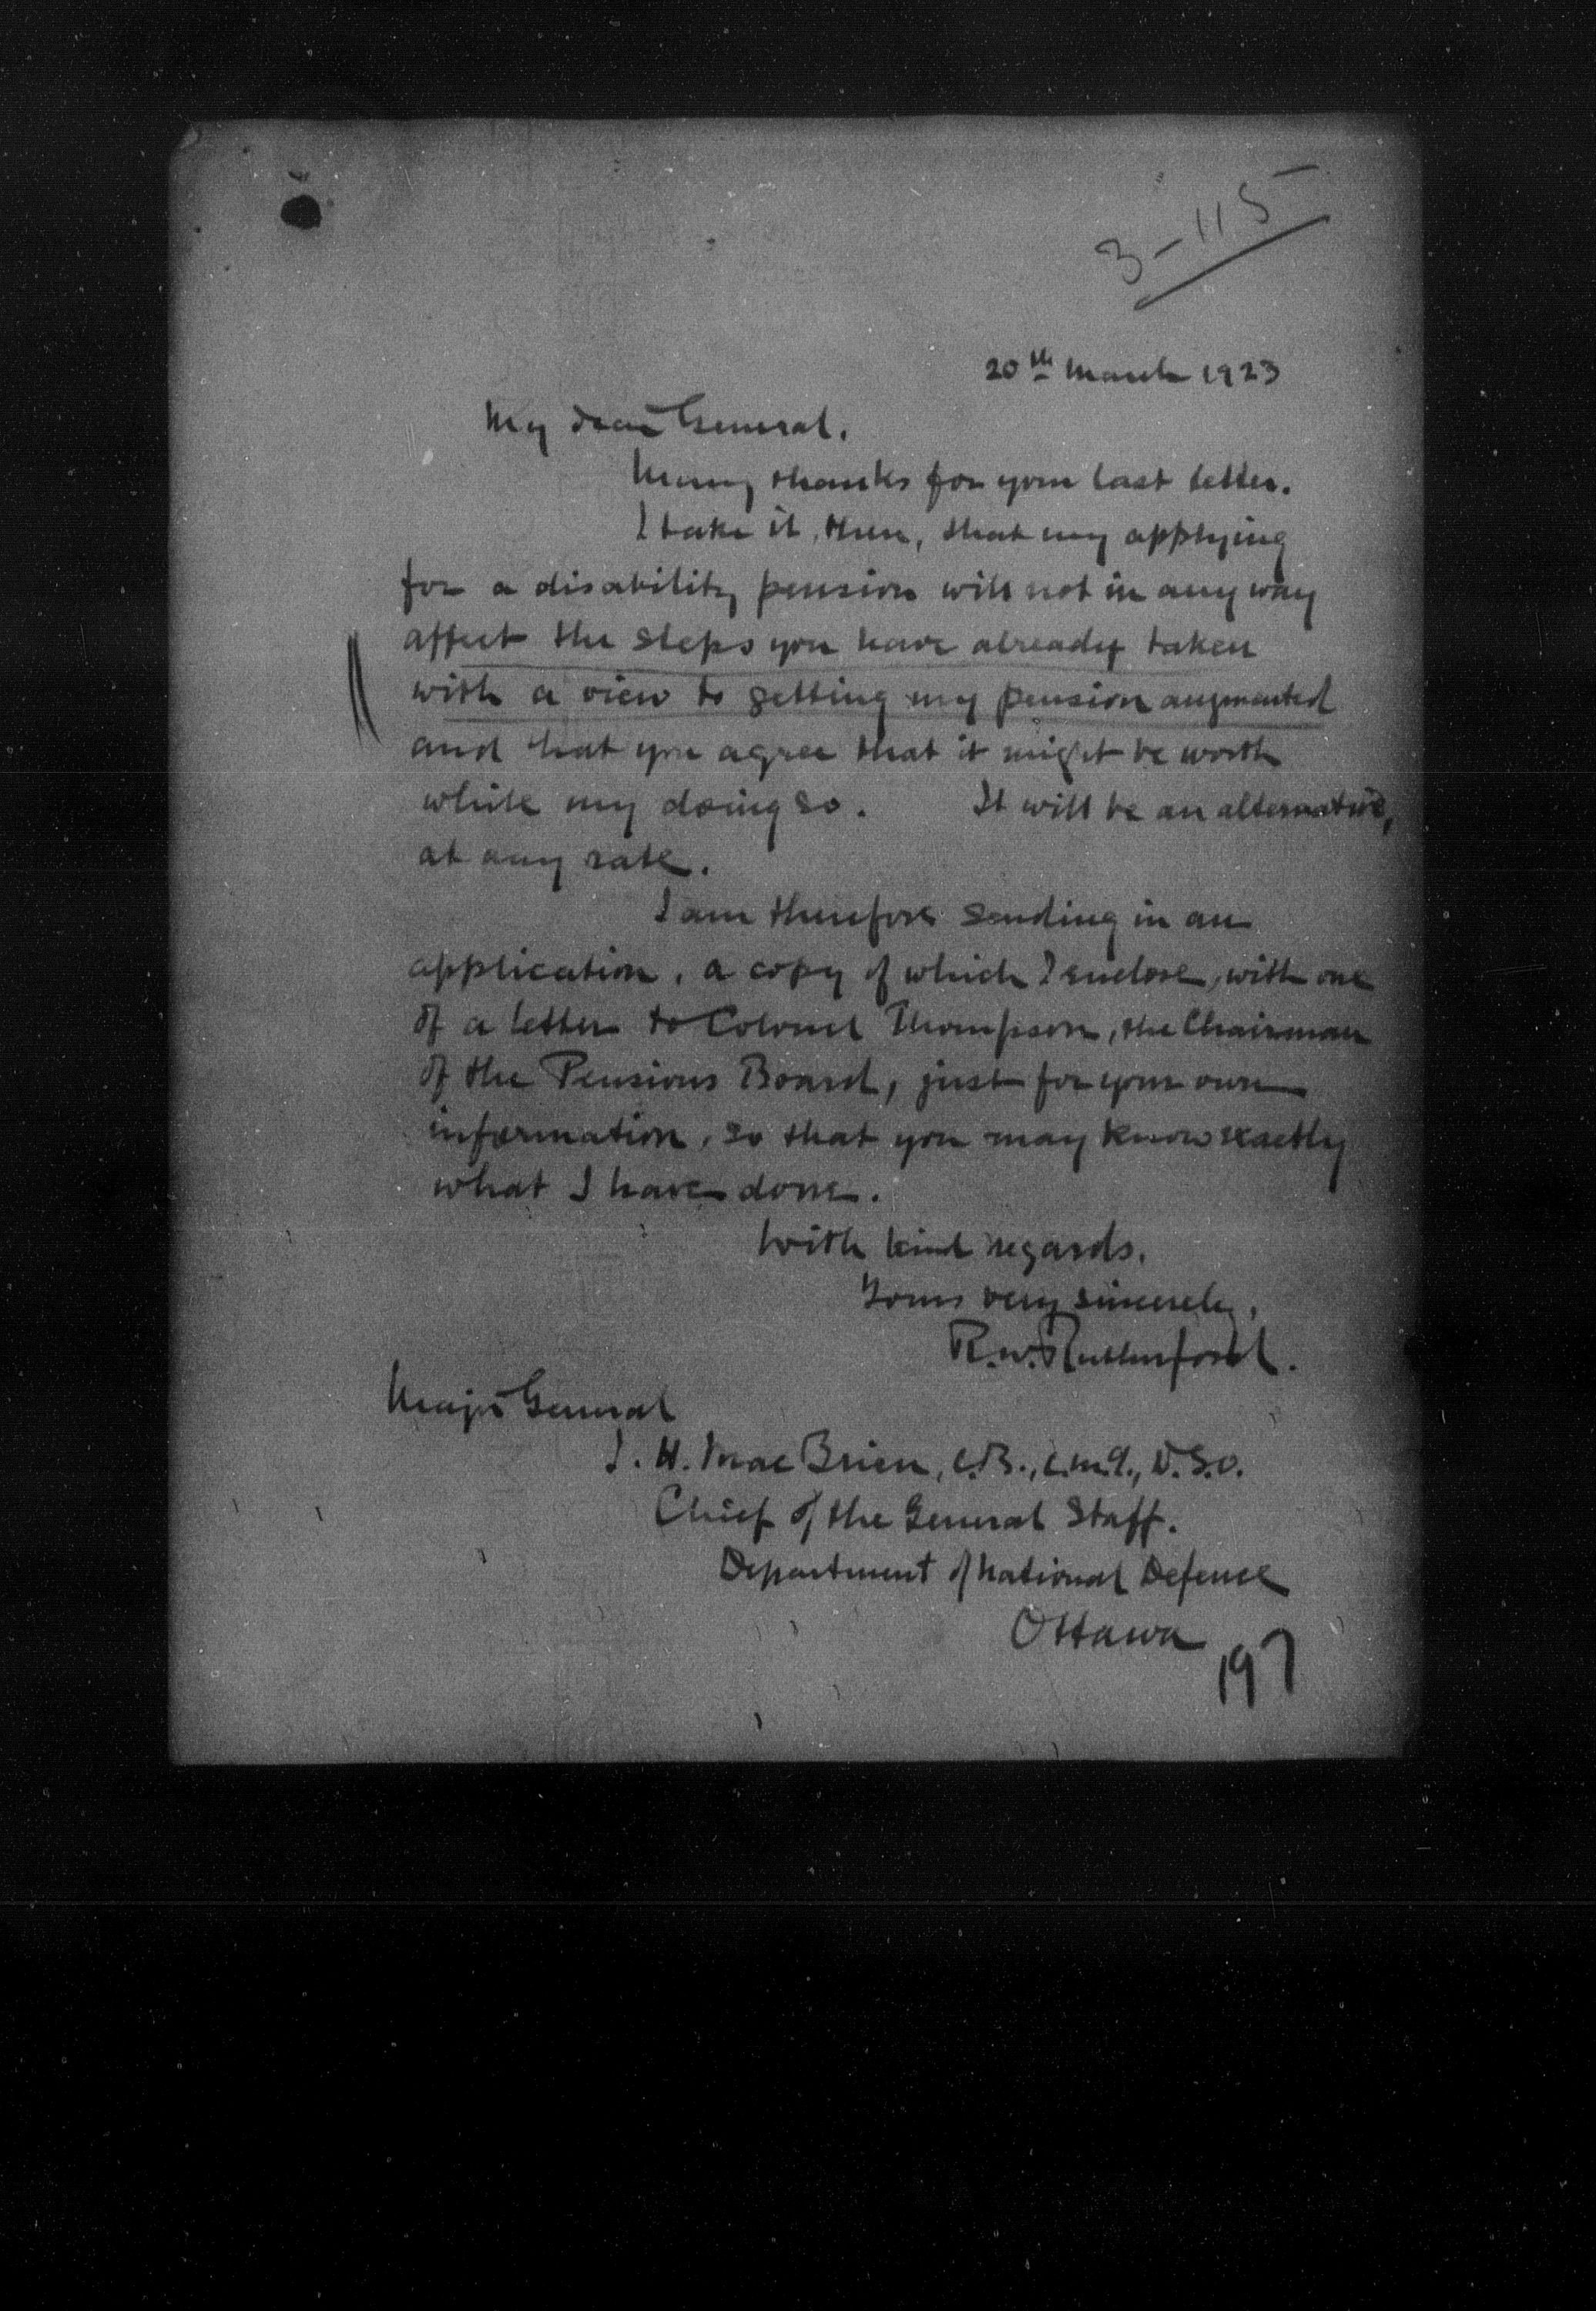 3-115
20th March 1923
My dear General.
Many thanks for your last letter.
I take it, then, that my applying
for a disability pension will not in any way
affect the steps you have already taken
with a view to getting my pension augmented
and that you agree that it might be worth
while my doing so. It will be an alternative,
at any rate.
I am therefore sending in an
application, a copy of which I enclose, with one
of a letter to Colonel Thompson, the Chairman
of the Pensions Board, just for your own
information, so that you may know exactly
what I have done.
With kind regards.
Yours very sincerely,
R.W. Rutherford.
Major General
J. H. MacBrien, C.B., C.M.G., D.S.O.
Chief of the General Staff.
Department of National Defence
Ottawa
197